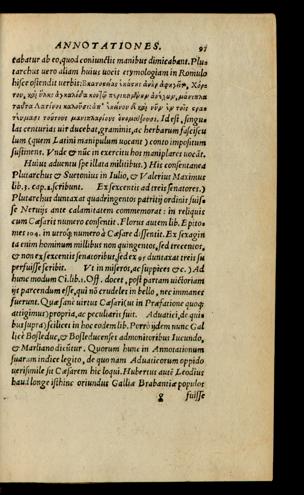 ANNOTATIONES. 91
eabatur ab eo, quod coniunctis manibus dimicabant. Plu
tarchus uero aliam huius uocis etymologiam in Romulo
hisce ostendit uerbis: ἑκάστης ἀνὴρ
τον, καὶ ὕλης ἀγκαλίδα
ταῦτα Λατῖνοι καλοῦσιν ἀπ' ἐκείνου δὲ καὶ νῦν ἐν τοῖς
τούτους μανιπλαρίους ὀνομάζουσι. Id est, singu
las centurias uir ducebat, graminis, ac herbarum fascicu
lum (quem Latini manipulum uocant) conto impositum
sustinens. Vnde & nūc in exercitu hos maniplares uocāt.
Huius aduentu spe illata militibus.) His consentanea
Plutarchus & Suetonius in Iulio, & Valerius Maximus
lib.3. cap.2. scribunt. Ex sexcentis ad treis senatores.)
Plutarchus duntaxat quadringentos patritij ordinis fuis-
se Neruijs ante calamitatem commemorat: in reliquis
cum Cæsaris numero consentit. Florus autem lib. Epito=
mes 104. in utroq; numero à Cæsare dissentit. Ex sexagin
ta enim hominum millibus non quingentos, sed trecentos,
& non ex sexcentis senatoribus, sed ex duntaxat treis su
perfuisse scribit. Vt in miseros, ac supplices &c.) Ad
hunc modum Ci. lib.1. Off. docet, post partam uictoriam
ijs parcendum esse, qui nō crudeles in bello, nec inmanes
fuerunt. Quæ sanè uirtus Cæsari (ut in Præfatione quoq;
attigimus) propria, ac peculiaris fuit. Aduatici, de qui=
bus supra) scilicet in hoc eodem lib. Porrò ijdem nunc Gal
licè Bosleduc, & Bosleducenses admonitoribus Iucundo,
& Marliano dicūtur. Quorum hunc in Annotationum
suarum indice legito, de quo nam Aduaticorum oppido
uerisimile sit Cæsarem hic loqui. Hubertus autē Leodius
haud longe isthinc oriundus Galliæ Brabantiæ populos
g fuisse